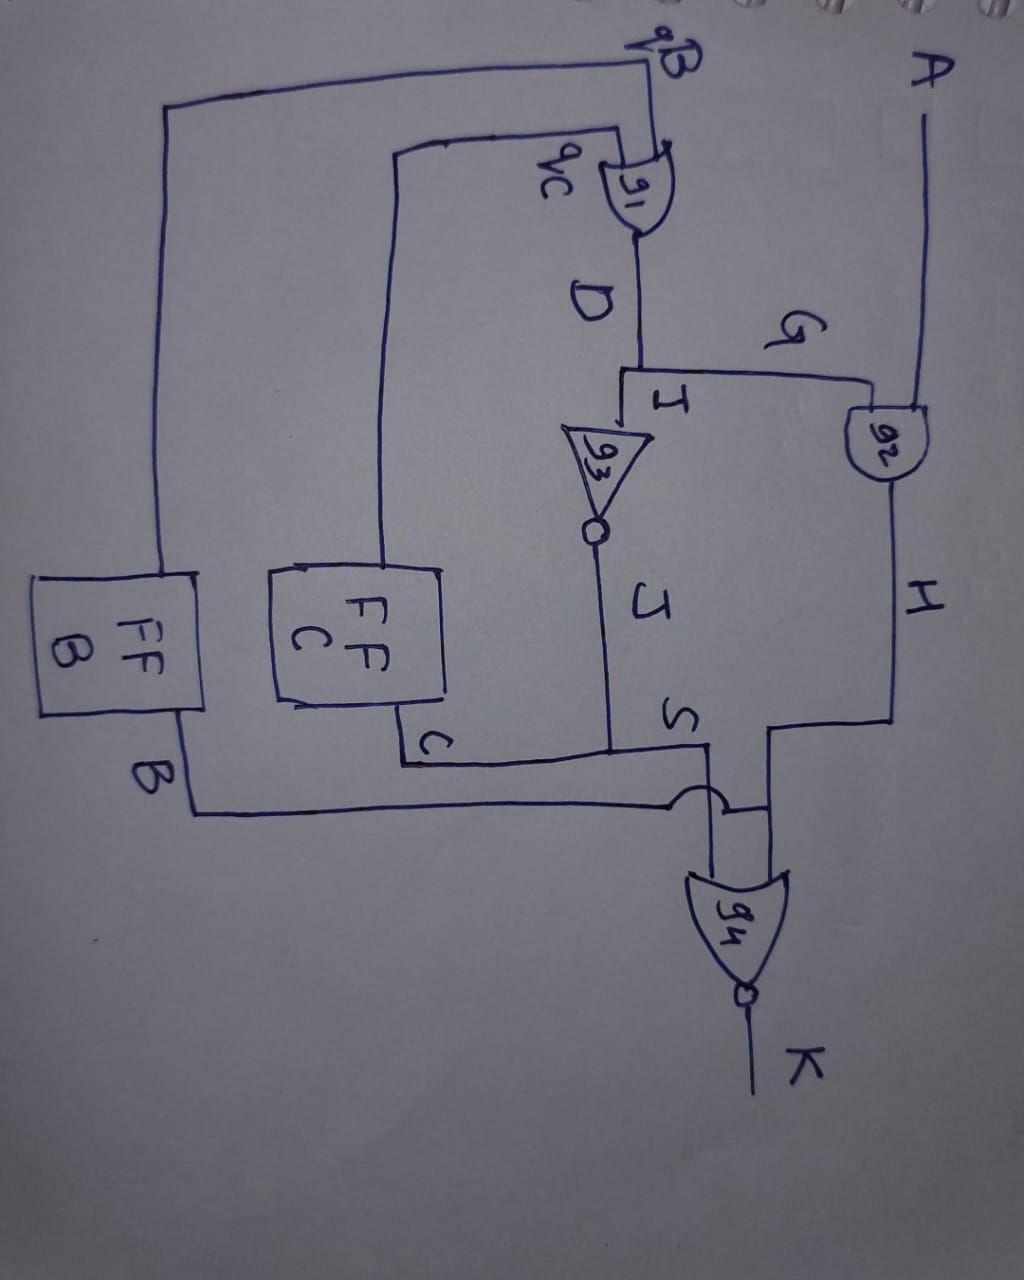 A
g2
H
G
K
g4
qB
g1
I
J
S
D
g3
qC
C
FF
C
FF
B
B